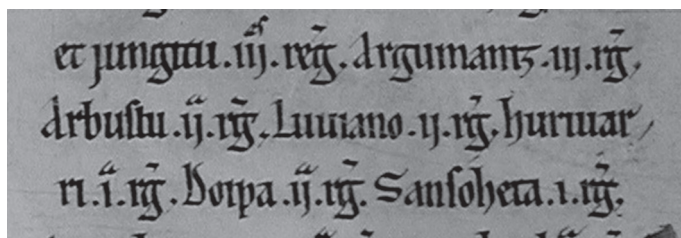 et jungitu . iij . reg̃ . Argumantz . iij . rg̃,
Arbustu . ij . rg̃, Luuiano . ij . rg̃. huruuar
ri . i . rg̃ . Dotpa . ij . rg̃. Sansoheta . i . rg̃,